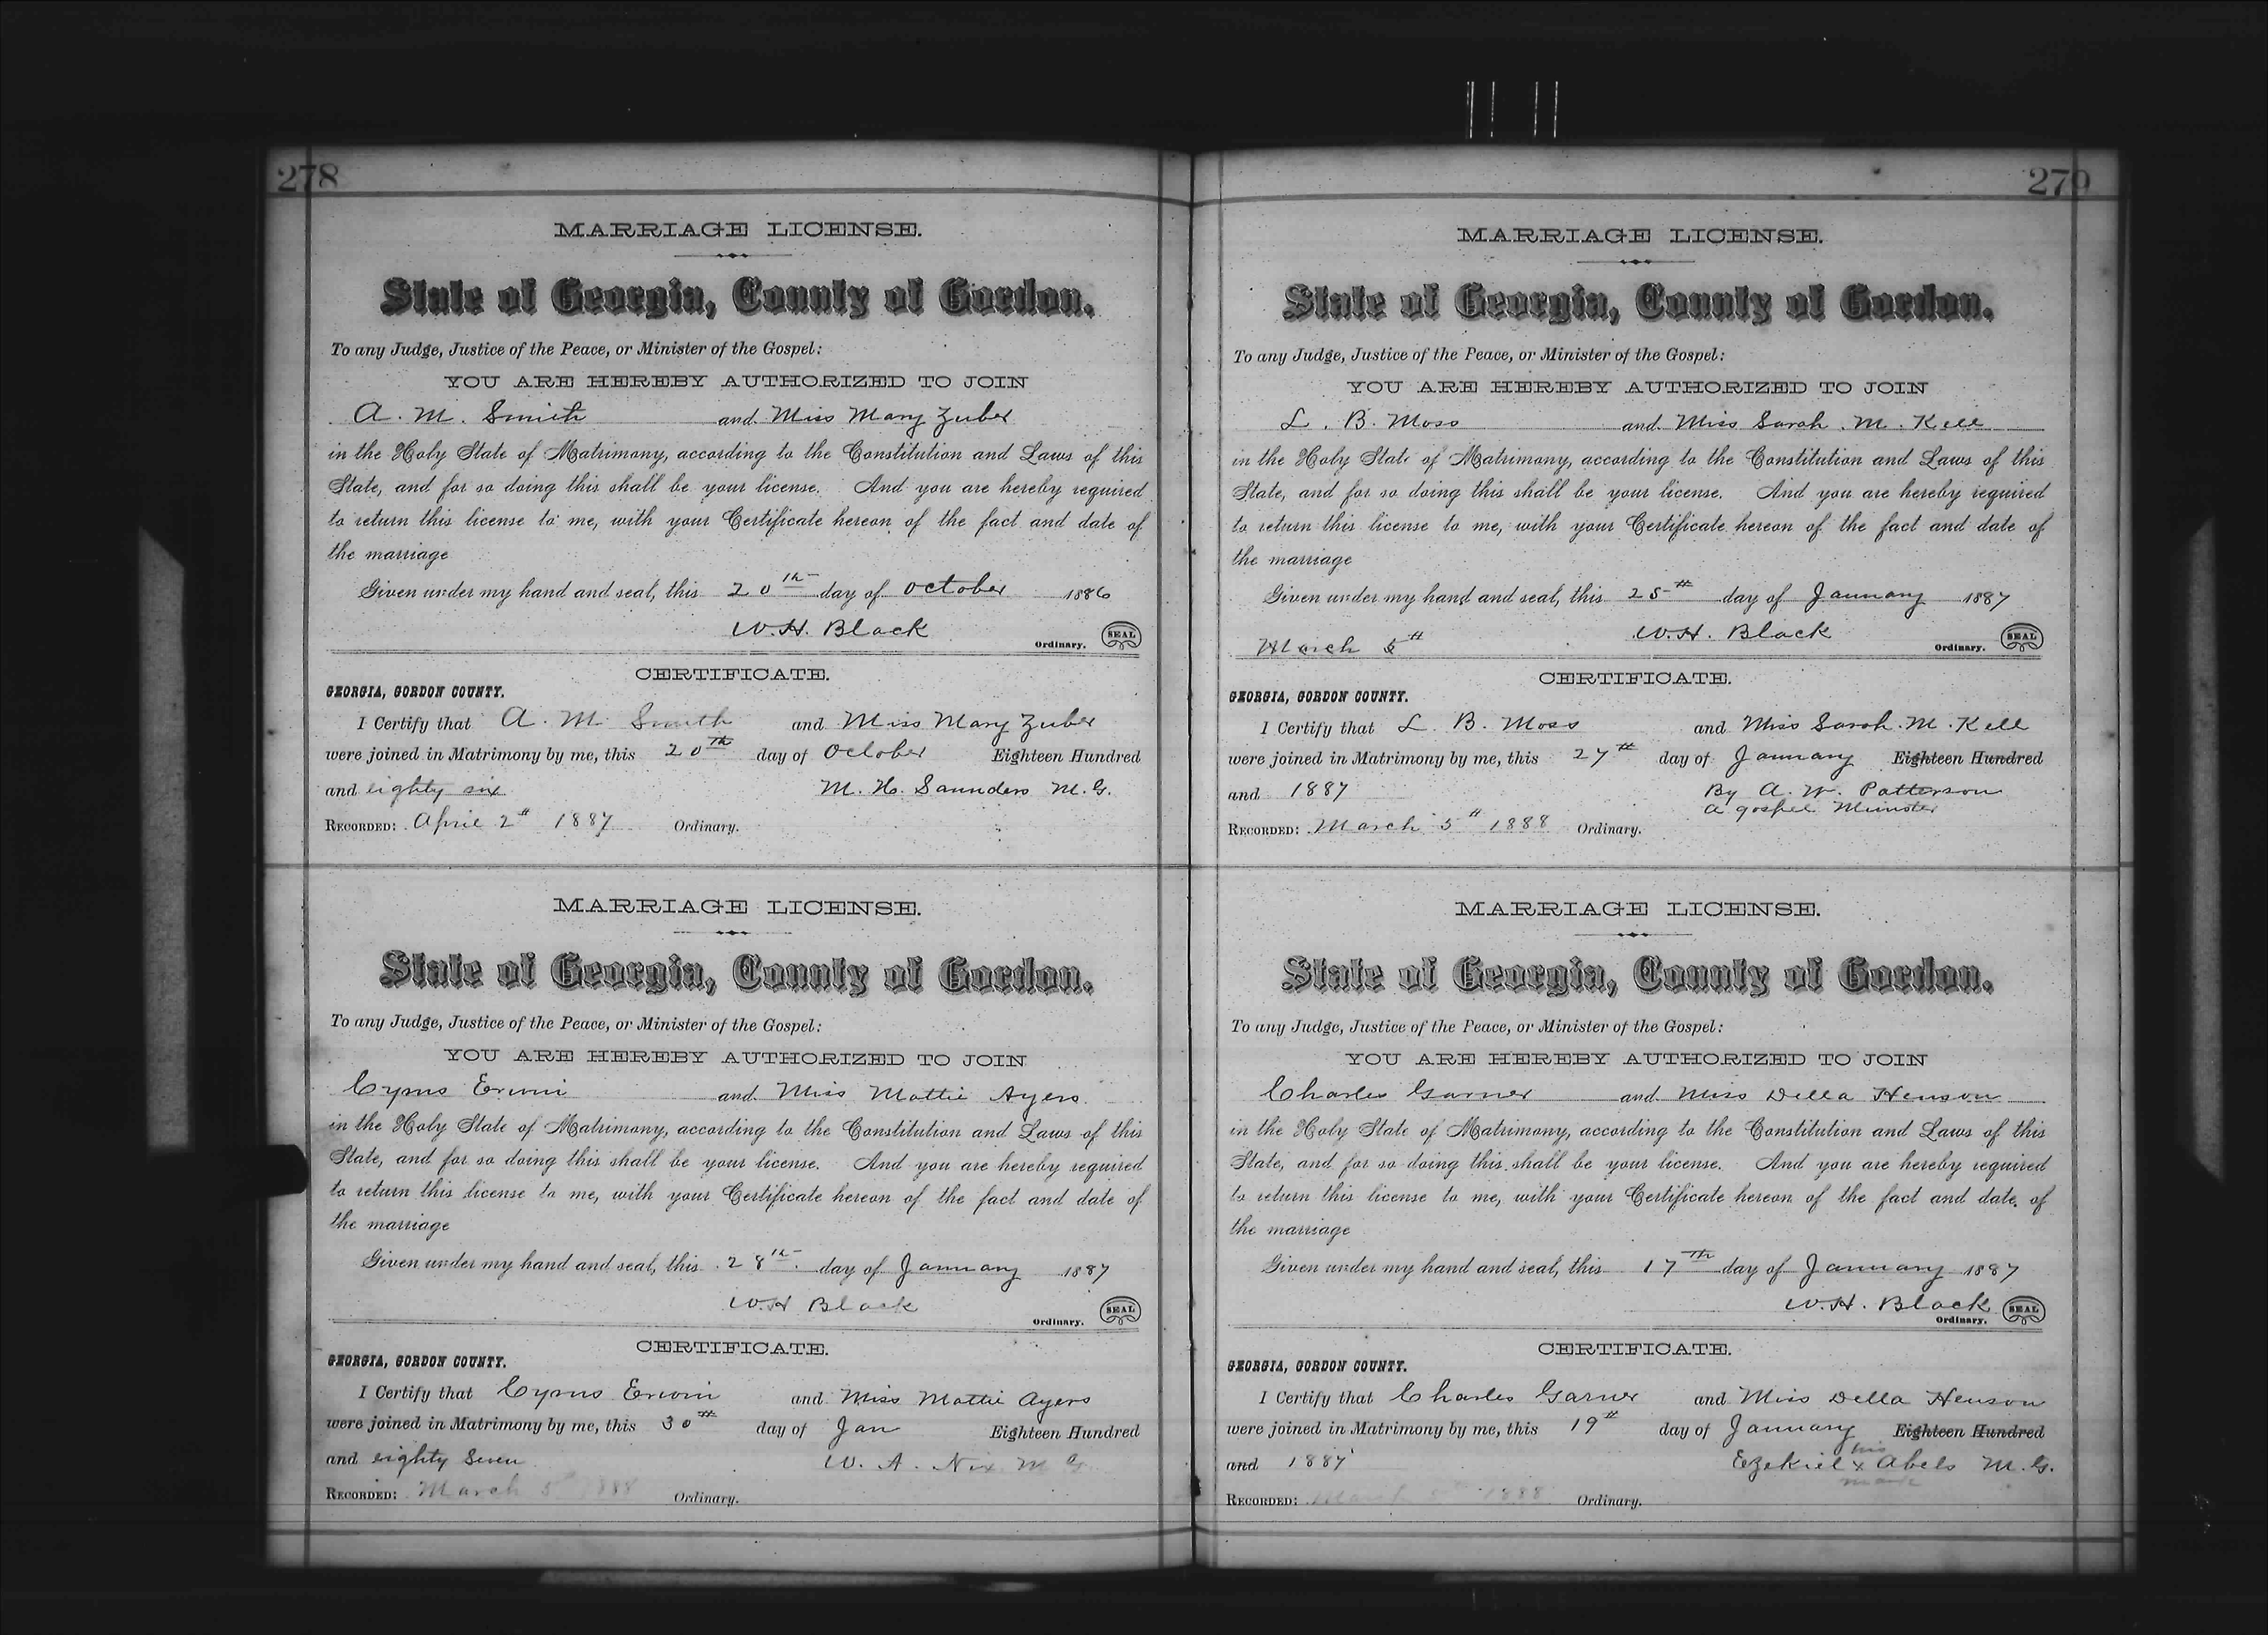 278
MARRIAGE LICENSE.
State of Georgia, County of Gordon.
To any Judge, Justice of the Peace, or Minister of the Gospel:
YOU ARE HEREBY AUTHORIZED TO JOIN
A. M. Smith and Miss Mary Zuber
in the Holy State of Matrimony, according to the Constitution and Laws of this
State, and for so doing this shall be your license. And you are hereby required
to return this license to me, with your Certificate hereon of the fact and date of
the marriage
Given under my hand and seal, this 20th day of October 1886
W. H. Black
Ordinary. SEAL
CERTIFICATE.
GEORGIA, GORDON COUNTY.
I Certify that A. M. Smith and Miss Mary Zuber
were joined in Matrimony by me, this 20th day of October Eighteen Hundred
and eighty six M. H. Saunders M. G.
RECORDED: April 2" 1887 Ordinary.
MARRIAGE LICENSE.
State of Georgia, County of Gordon.
To any Judge, Justice of the Peace, or Minister of the Gospel:
YOU ARE HEREBY AUTHORIZED TO JOIN
Cyrus Erwin and Miss Mattie Ayers
in the Holy State of Matrimony, according to the Constitution and Laws of this
State, and for so doing this shall be your license. And you are hereby required
to return this license to me, with your Certificate hereon of the fact and date of
the marriage
Given under my hand and seal, this 28th day of January 1887
W. H Black
Ordinary. SEAL
CERTIFICATE.
GEORGIA, GORDON COUNTY.
I Certify that Cyrus Erwin and Miss Mattie Ayers
were joined in Matrimony by me, this 30th day of Jan Eighteen Hundred
and eighty Seven W. A. Nix M G
RECORDED: March 5th 1888 Ordinary.
279
MARRIAGE LICENSE.
State of Georgia, County of Gordon.
To any Judge, Justice of the Peace, or Minister of the Gospel:
YOU ARE HEREBY AUTHORIZED TO JOIN
L. B. Moss and Miss Sarah M. Kell
in the Holy State of Matrimony, according to the Constitution and Laws of this
State, and for so doing this shall be your license. And you are hereby required
to return this license to me, with your Certificate hereon of the fact and date of
the marriage
Given under my hand and seal, this 25th day of January 1887
March 5th W. H. Black
Ordinary. SEAL
CERTIFICATE.
GEORGIA, GORDON COUNTY.
I Certify that L. B. Moss and Miss Sarah M. Kell
were joined in Matrimony by me, this 27th day of January Eighteen Hundred
and 1887 By A. W. Patterson
a gospel Minister
RECORDED: March 5th 1888 Ordinary.
MARRIAGE LICENSE.
State of Georgia, County of Gordon.
To any Judge, Justice of the Peace, or Minister of the Gospel:
YOU ARE HEREBY AUTHORIZED TO JOIN
Charles Garner and Miss Della Henson
in the Holy State of Matrimony, according to the Constitution and Laws of this
State, and for so doing this shall be your license. And you are hereby required
to return this license to me, with your Certificate hereon of the fact and date of
the marriage
Given under my hand and seal, this 17th day of January 1887
W. H. Black SEAL
Ordinary.
CERTIFICATE.
GEORGIA, GORDON COUNTY.
I Certify that Charles Garner and Miss Della Henson
were joined in Matrimony by me, this 19th day of January Eighteen Hundred
his
and 1887 Ezekiel x Abels M. G.
mark
RECORDED: March 5th 1888 Ordinary.